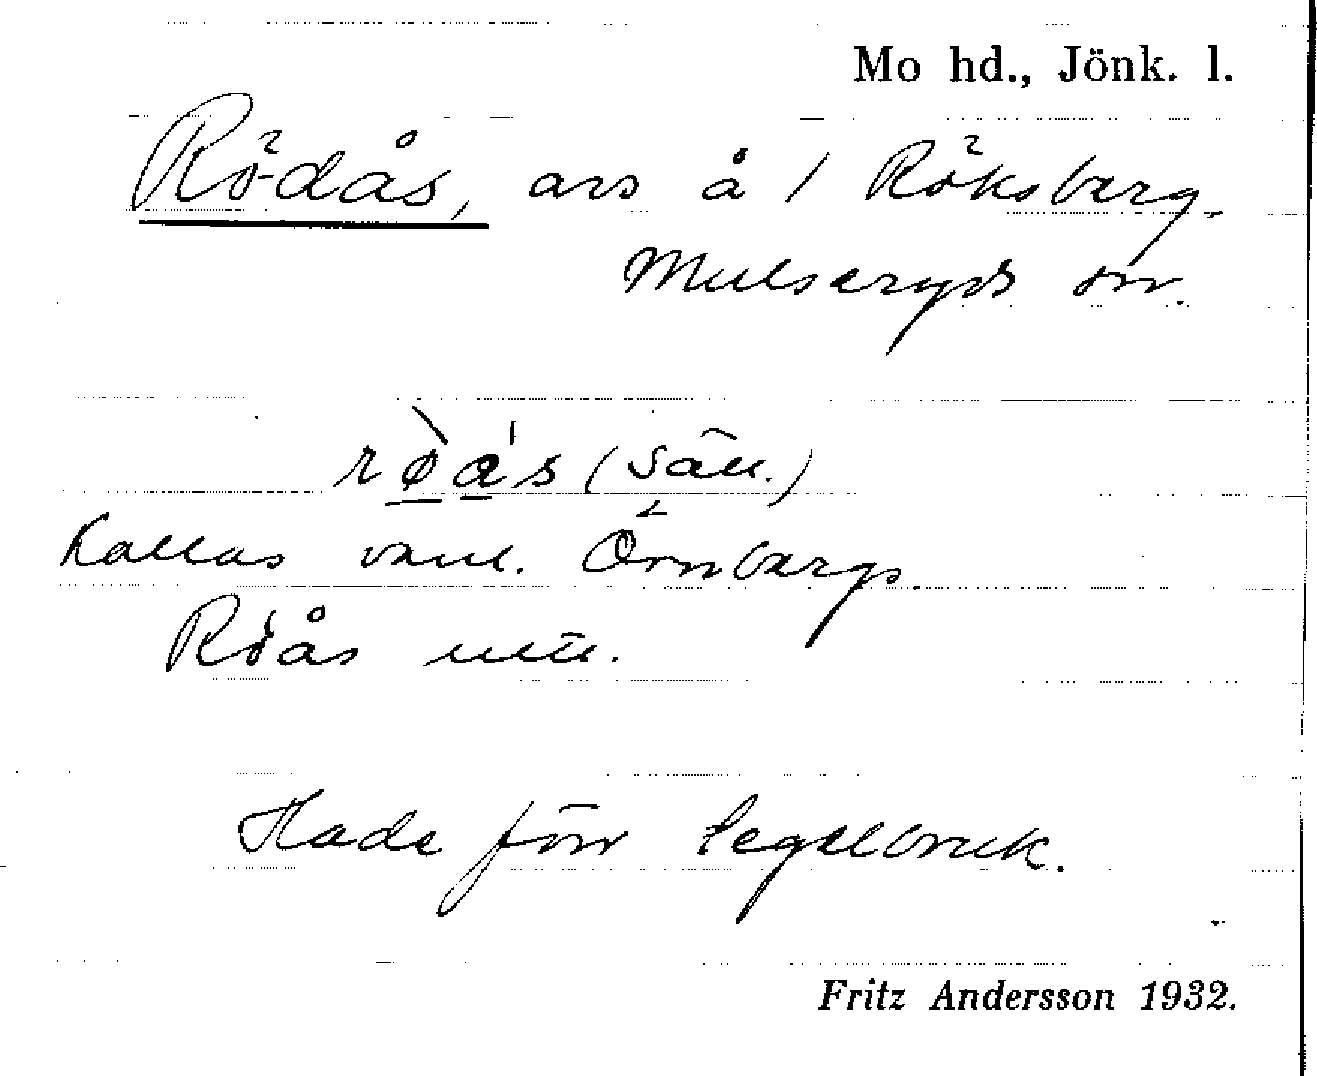 Mo hd., Jönk. l.
Rödås, avs å 1 Röksberg.
Mulseryds sn.
røas (sän.)
Kallas vanl. Örnbergs.
Röås
Hade förr tegelbruk.
Fritz Andersson 1932.